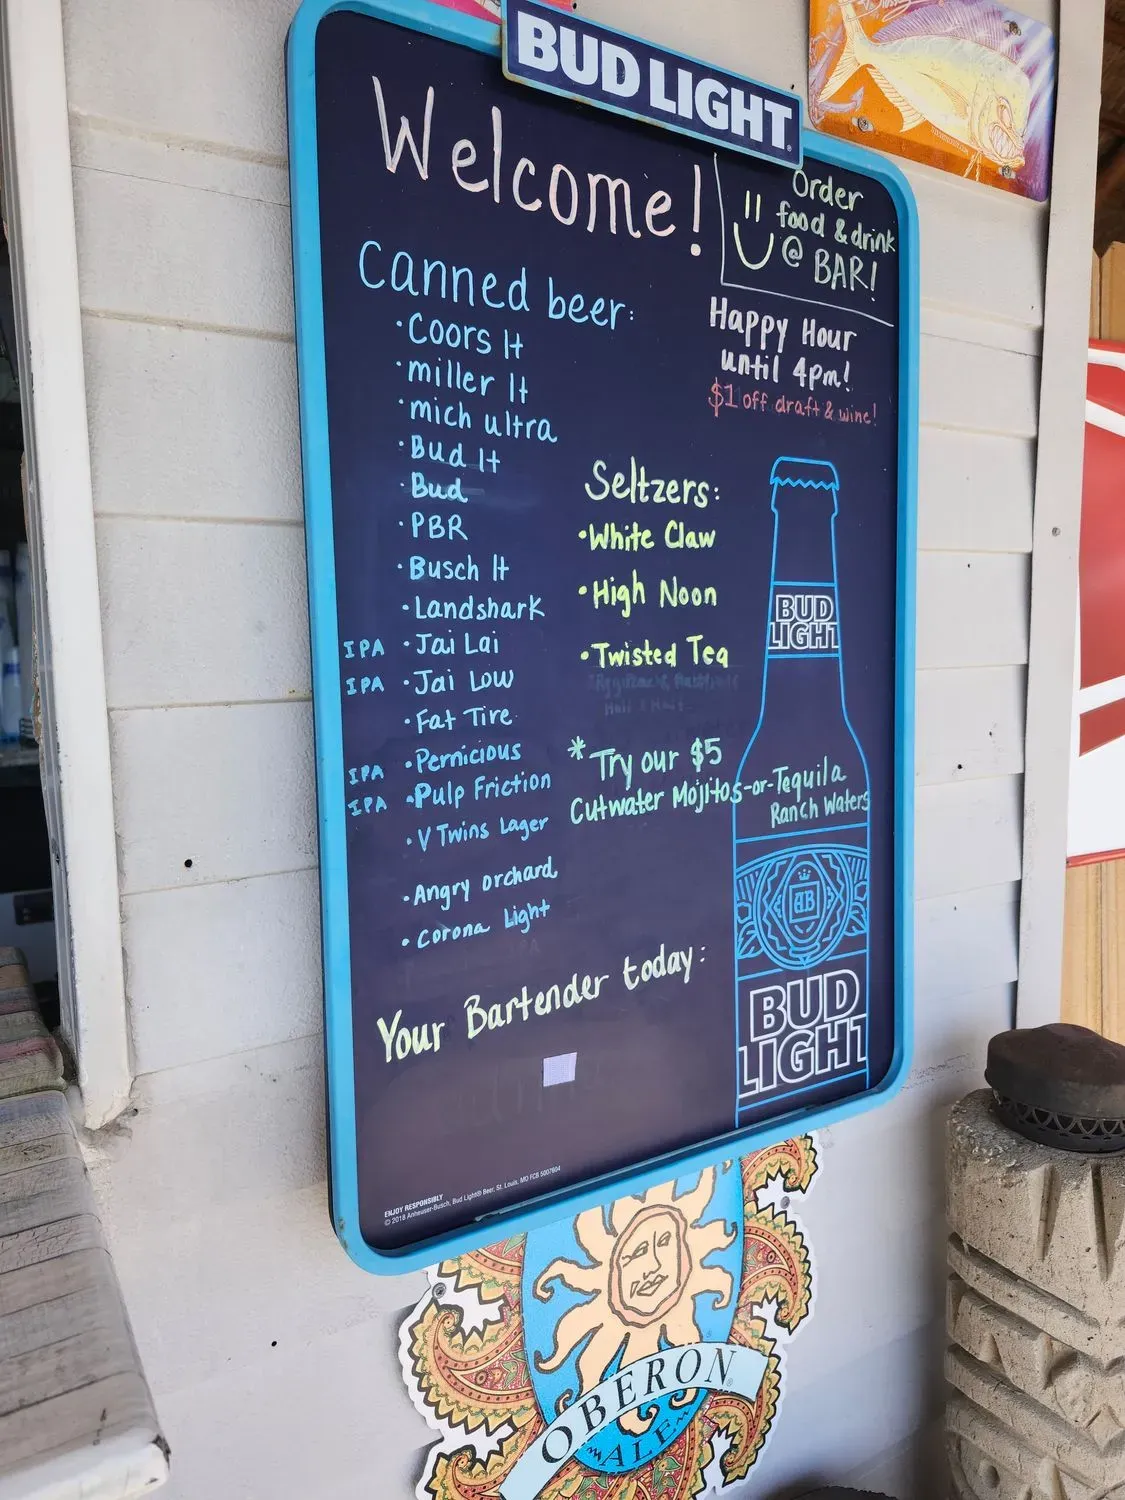 BUD LIGHT
Welcome!
Order
food & drink
@ BAR!
Happy Hour
until 4pm!
$1 off draft & wine!
Canned beer:
• Coors lt
• miller lt
• mich ultra
• Bud lt
• Bud
• PBR
• Busch lt
• Landshark
IPA • Jai Lai
IPA • Jai Low
• Fat Tire
IPA • Pernicious
IPA • Pulp Friction
• V Twins Lager
• Angry orchard
• Corona Light
Seltzers:
• White Claw
• High Noon
• Twisted Tea
* Try our $5
Cutwater Mojitos-or-Tequila
Ranch Waters
Your Bartender today:
BUD
LIGHT
AB
BUD
LIGHT
ENJOY RESPONSIBLY
© 2018 Anheuser-Busch, Bud Light® Beer, St. Louis, MO FCB 5007604
OBERON
ALE